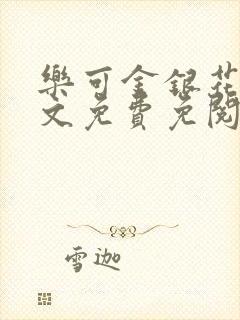 樂可金銀花
文免費免閱
雪迦